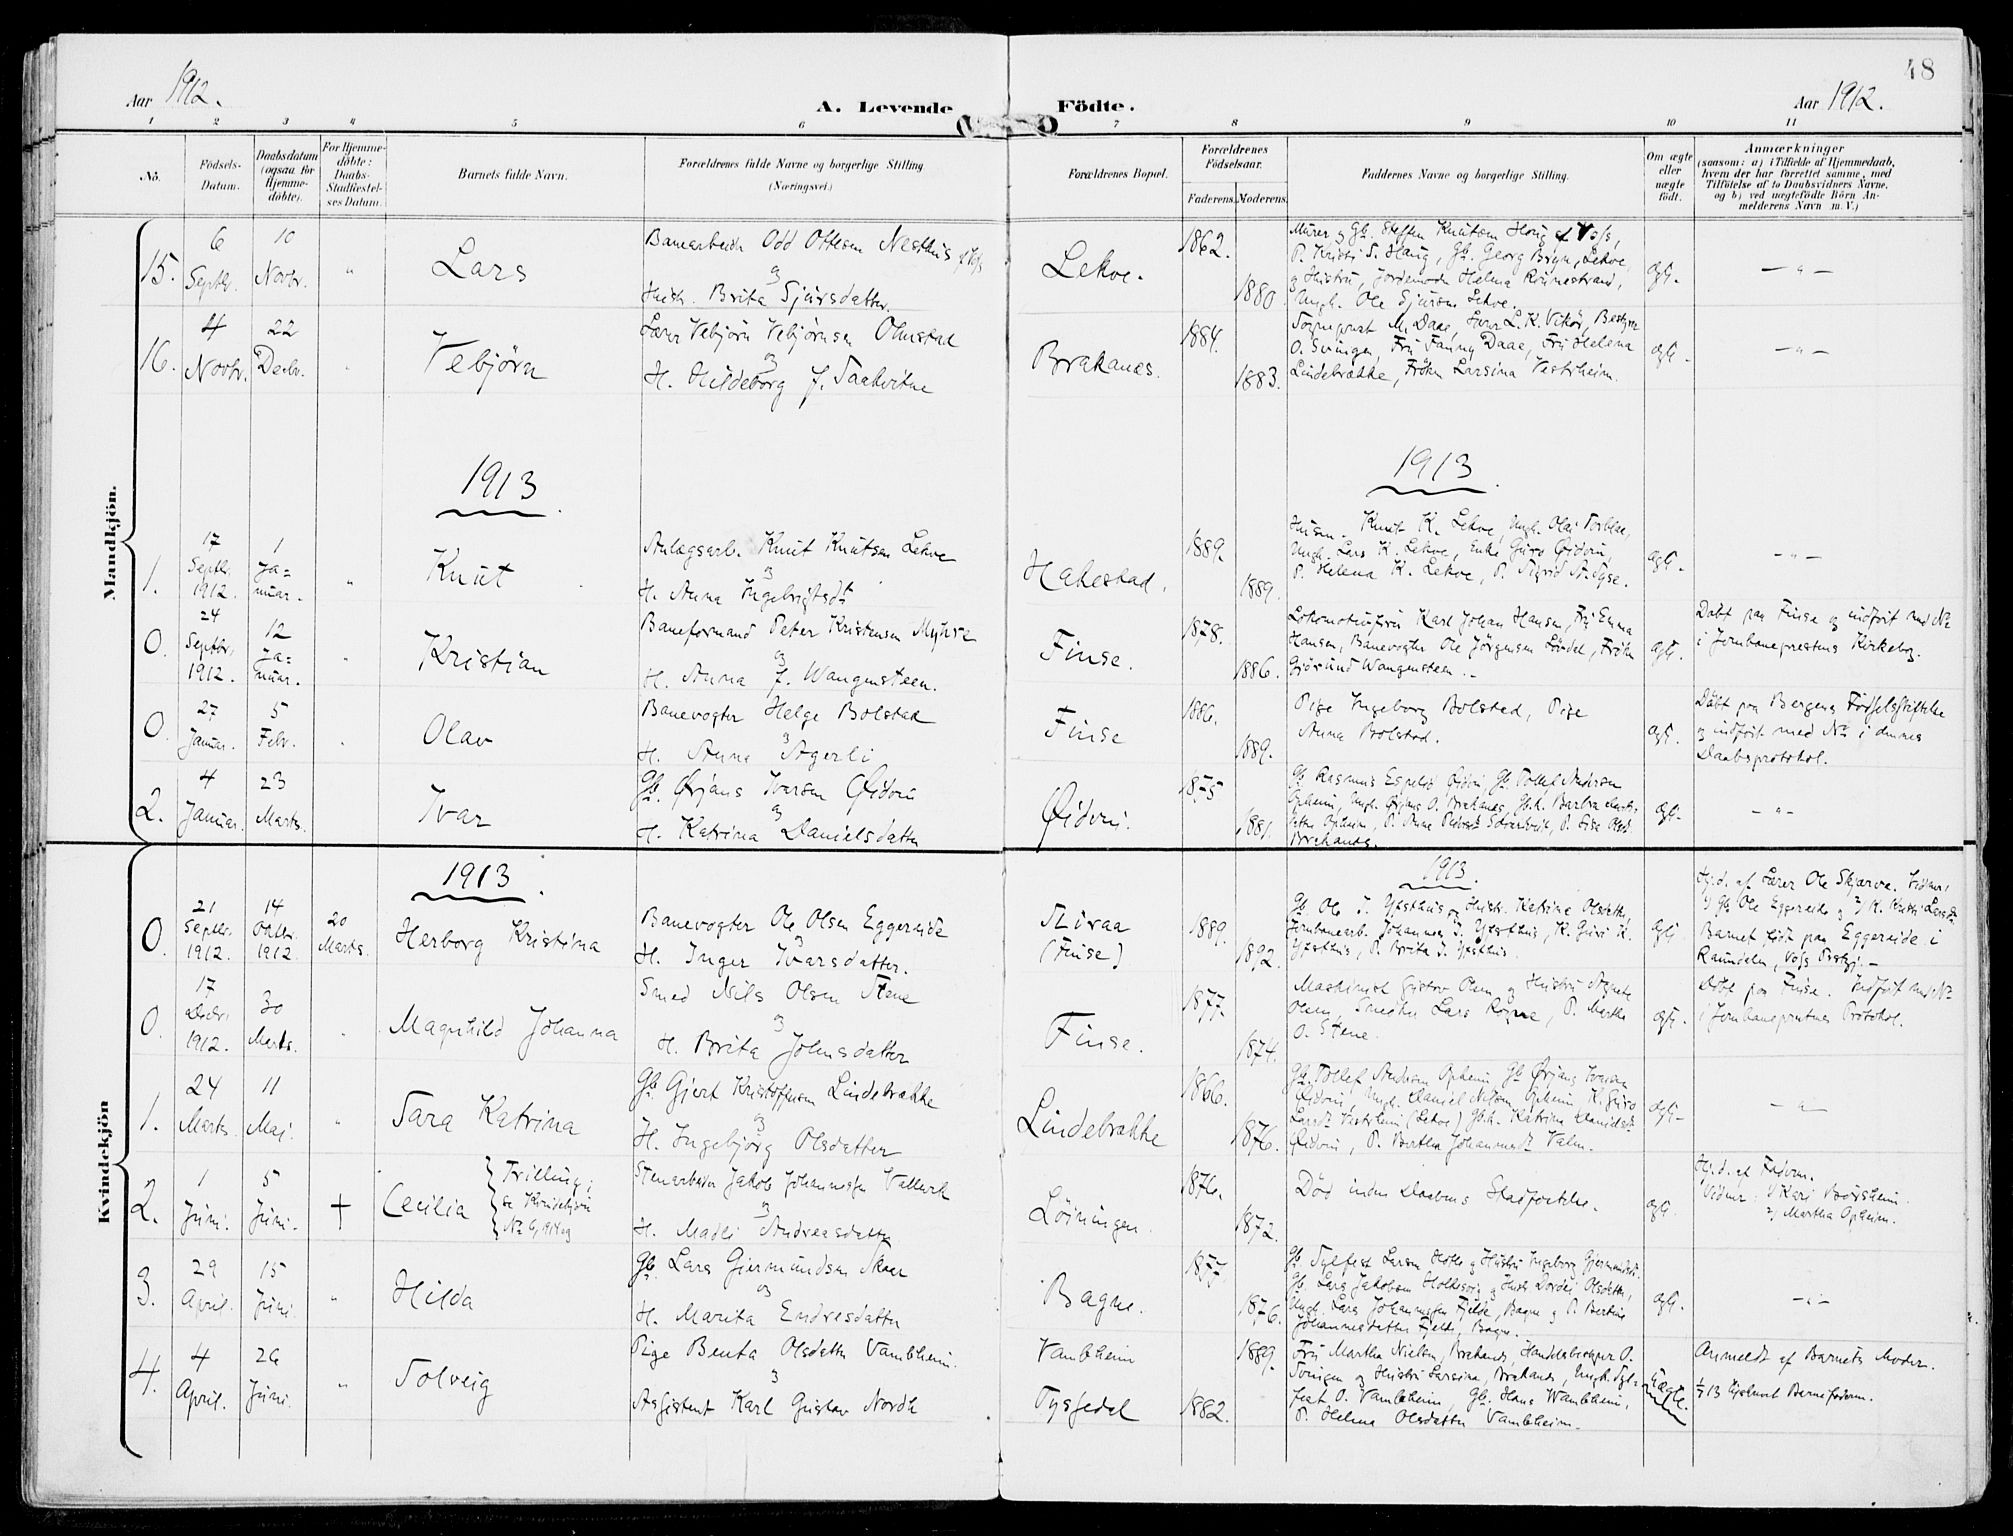 48
Aar 1912.
A. Levende Födte.
Aar 1912.
1 2 3 4 5 6 7 8 9 10 11
No.
Födsels-Datum.
Daabsdatum (ogsaa for Hjemme-döbte).
For Hjemme-döbte: Daabs-Stadfæstel-ses Datum.
Barnets fulde Navn.
Forældrenes fulde Navne og borgerlige Stilling (Næringsvei.)
Forældrenes Bopæl.
Forældrenes Födselsaar.
Faderens. Moderens.
Faddernes Navne og borgerlige Stilling.
Om ægte eller uægte födt.
Anmærkninger
(saasom: a) i Tilfælde af Hjemmedaab,
hvem der har forrettet samme, med
Tilföielse af to Daabsvidners Navne,
og b) ved uægtefödte Börn An-
melderens Navn m. V.)
Mandkjön.
15. 6 Septbr. 10 Novbr. " Lars
Banearbeider Odd Ottesen Nesthus
og
Hustr. Brita Sjursdatter.
Lekve. 1862. 1880
Murer og Gb. Steffen Knutsen Haug af Voss,
P. Kristi S. Haug, Gb. Georg Brynn, Lekve,
og Hustru, Jordemoder Helena Rönnestrand,
Ungk. Ole Sjursen Lekve.
ægte. — " —
16. 4 Novbr. 22 Decbr. " Vebjörn
Lærer Vebjörn Vebjörnsen Olmstad
og
H. Hildeborg f. Saakvitne
Brakanes. 1884. 1883.
Sogneprest M. Daae, Lærer L. K. Vikör, Bestyrer
O. Svingen, Fru Fanny Daae, Fru Helena
Lindebrække, Fröken Larsina Vestrheim.
ægte. — " —
1913
1913
1. 17 Septbr. 1912. 1 Januar. " Knut
Anlægsarb. Knut Knutsen Lekve
og
H. Anna Ingebrigtsdt
Hakestad. 1889. 1889.
Husm. Knut K. Lekve, Ungk. Olai Torblaa,
Ungk. Lars K. Lekve, Enke Guro Öidvin,
P. Helena K. Lekve, P. Sigrid
ægte. — " —
0. 24 Septbr. 1912. 12 Januar. " Kristian
Baneformand Peter Kristensen Myhre
og
H. Anna f. Wangensteen.
Finse. 1878. 1886.
Lokomotivfører Karl Johan Hansen, Fru Emma
Hansen, Banevogter Ole Jörgensen Lövdal, Fröken
Gjörund Wangensteen.
ægte.
Döbt paa Finse og indfört med No
i Jernbaneprestens Kirkebog.
0. 27 Januar. 5 Febr. " Olav
Banevogter Helge Bolstad
og
H. Anna Agerli
Finse 1886. 1889.
Pige Ingeborg Bolstad, Pige
Anna Bolstad.
ægte.
Döbt paa Bergens Födselsstiftelse
og indfört med No i dennes
Daabsprotokol.
2. 4 Januar. 23 Marts. Ivar
Gb. Örjans Iversen Öidvin
og
H. Katrina Danielsdatter
Öidvin. 1875 1881.
Gb. Rasmus Espeland Öidvin, Gb. Tollef Andersen
Opheim, Ungk. Örjans O. Brakanes, Gb.k. Barbra
Brakanes.
ægte. — " —
Kvindekjön
1913
1913.
0. 21 Septbr. 1912. 14 Oktbr. 1912. 20 Marts. Herborg Kristina
Banevogter Ole Olsen Eggereide
og
H. Inger Ivarsdatter.
(Finse) 1889. 1892.
Gb. Ole I. Ytsthus og Hustr. Katrine Olsdatter,
Jernbanearb. Johannes I. Ytsthus, K. Guri K.
Ytsthus, P. Brita I. Ytsthus.
ægte
Hj.d. af Lærer Ole Skjerve. Vidner:
1/ Gb. Ole Eggereide og 2/ K.
Barnet födt paa Eggereide i
Raundalen, Voss Prstgj. —
0. 17 Decbr. 1912. 30 Marts. " Magnhild Johanna
Smed Nils Olsen Stene
og
H. Brita Johnsdatter
Finse. 1877. 1874.
Maskinist Gustav Olsen og Hustru Agnete
Olsen, Smedm. Lars Rogne, P. Martha
O. Stene.
ægte.
Döbt paa Finse. Indfört med No
i Jernbaneprestens Protokol.
1. 24 Marts. 11 Mai. " Sara Katrina
Gb. Gjert Kristoffersen Lindebrække
og
H. Ingebjörg Olsdatter
Lindebrække 1866. 1876.
Gb. Tollef Andersen Opheim, Gb. Örjans Iversen
Öidvin, Ungk. Daniel Nilsen Opheim, K. Guro
Larsdt. Vestrheim (Lekve) Gb.k. Katrina Danielsdt.
Öidvin, P. Bertha Johannesdt. Valm.
ægte — " —
2. 1 Juni. 5 Juni. † Cecilia
Trilling; se Kvindekjön No 6, 1914 og
Stenarbeider Jakob Johannessen Vallevik
og
H. Madli Andreasdatter
Löiningen. 1876. 1872.
Död inden Daabens Stadfæstelse.
ægte.
Hj.d. af Faderen.
Vidner: 1/ Kari Börsheim.
2/ Martha Opheim.
3. 29 April. 15 Juni. " Hilda
Gb. Lars Giermundsen Skaar
og
H. Marita Endresdatter
Bagne. 1877. 1876.
Gb. Sylfest Larsen Holte og Hustru Ingeborg Gjermundsdt.
Gb. Lars Jakobsen Holtesvig og Hustr. Dordei Olsdatter,
Ungk. Lars Johannessen Fjelde, Bagne og P. Bertine
Johannesdatter Fjelde, Bagne.
ægte. — " —
4. 4 April. 26 Juni. " Solveig
Pige Benta Olsdatter Vambheim.
og
Assistent Karl Gustav Nordli
Vambheim 1889.
Tyssedal 1882.
Fru Martha Nielsen, Brakanes, Handelsbestyrer O.
Svingen og Hustru Larsina, Brakanes, Ungk. Syl-
fest O. Vambheim, Gb. Hans Wambheim,
P. Helena Olsdatter Vambheim.
Uægte.
Anmeldt af Barnets Moder.